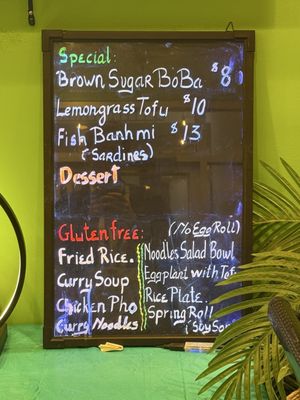 Special:
Brown Sugar BoBa $8
Lemongrass Tofu $10
Fish Banh mi $13
(Sardines)
Dessert
Gluten free: (No Egg Roll)
Fried Rice.
Curry Soup
Chicken Pho
Curry Noodles
Noodles Salad Bowl
Eggplant with Tofu
Rice Plate.
Spring Roll
(Soy